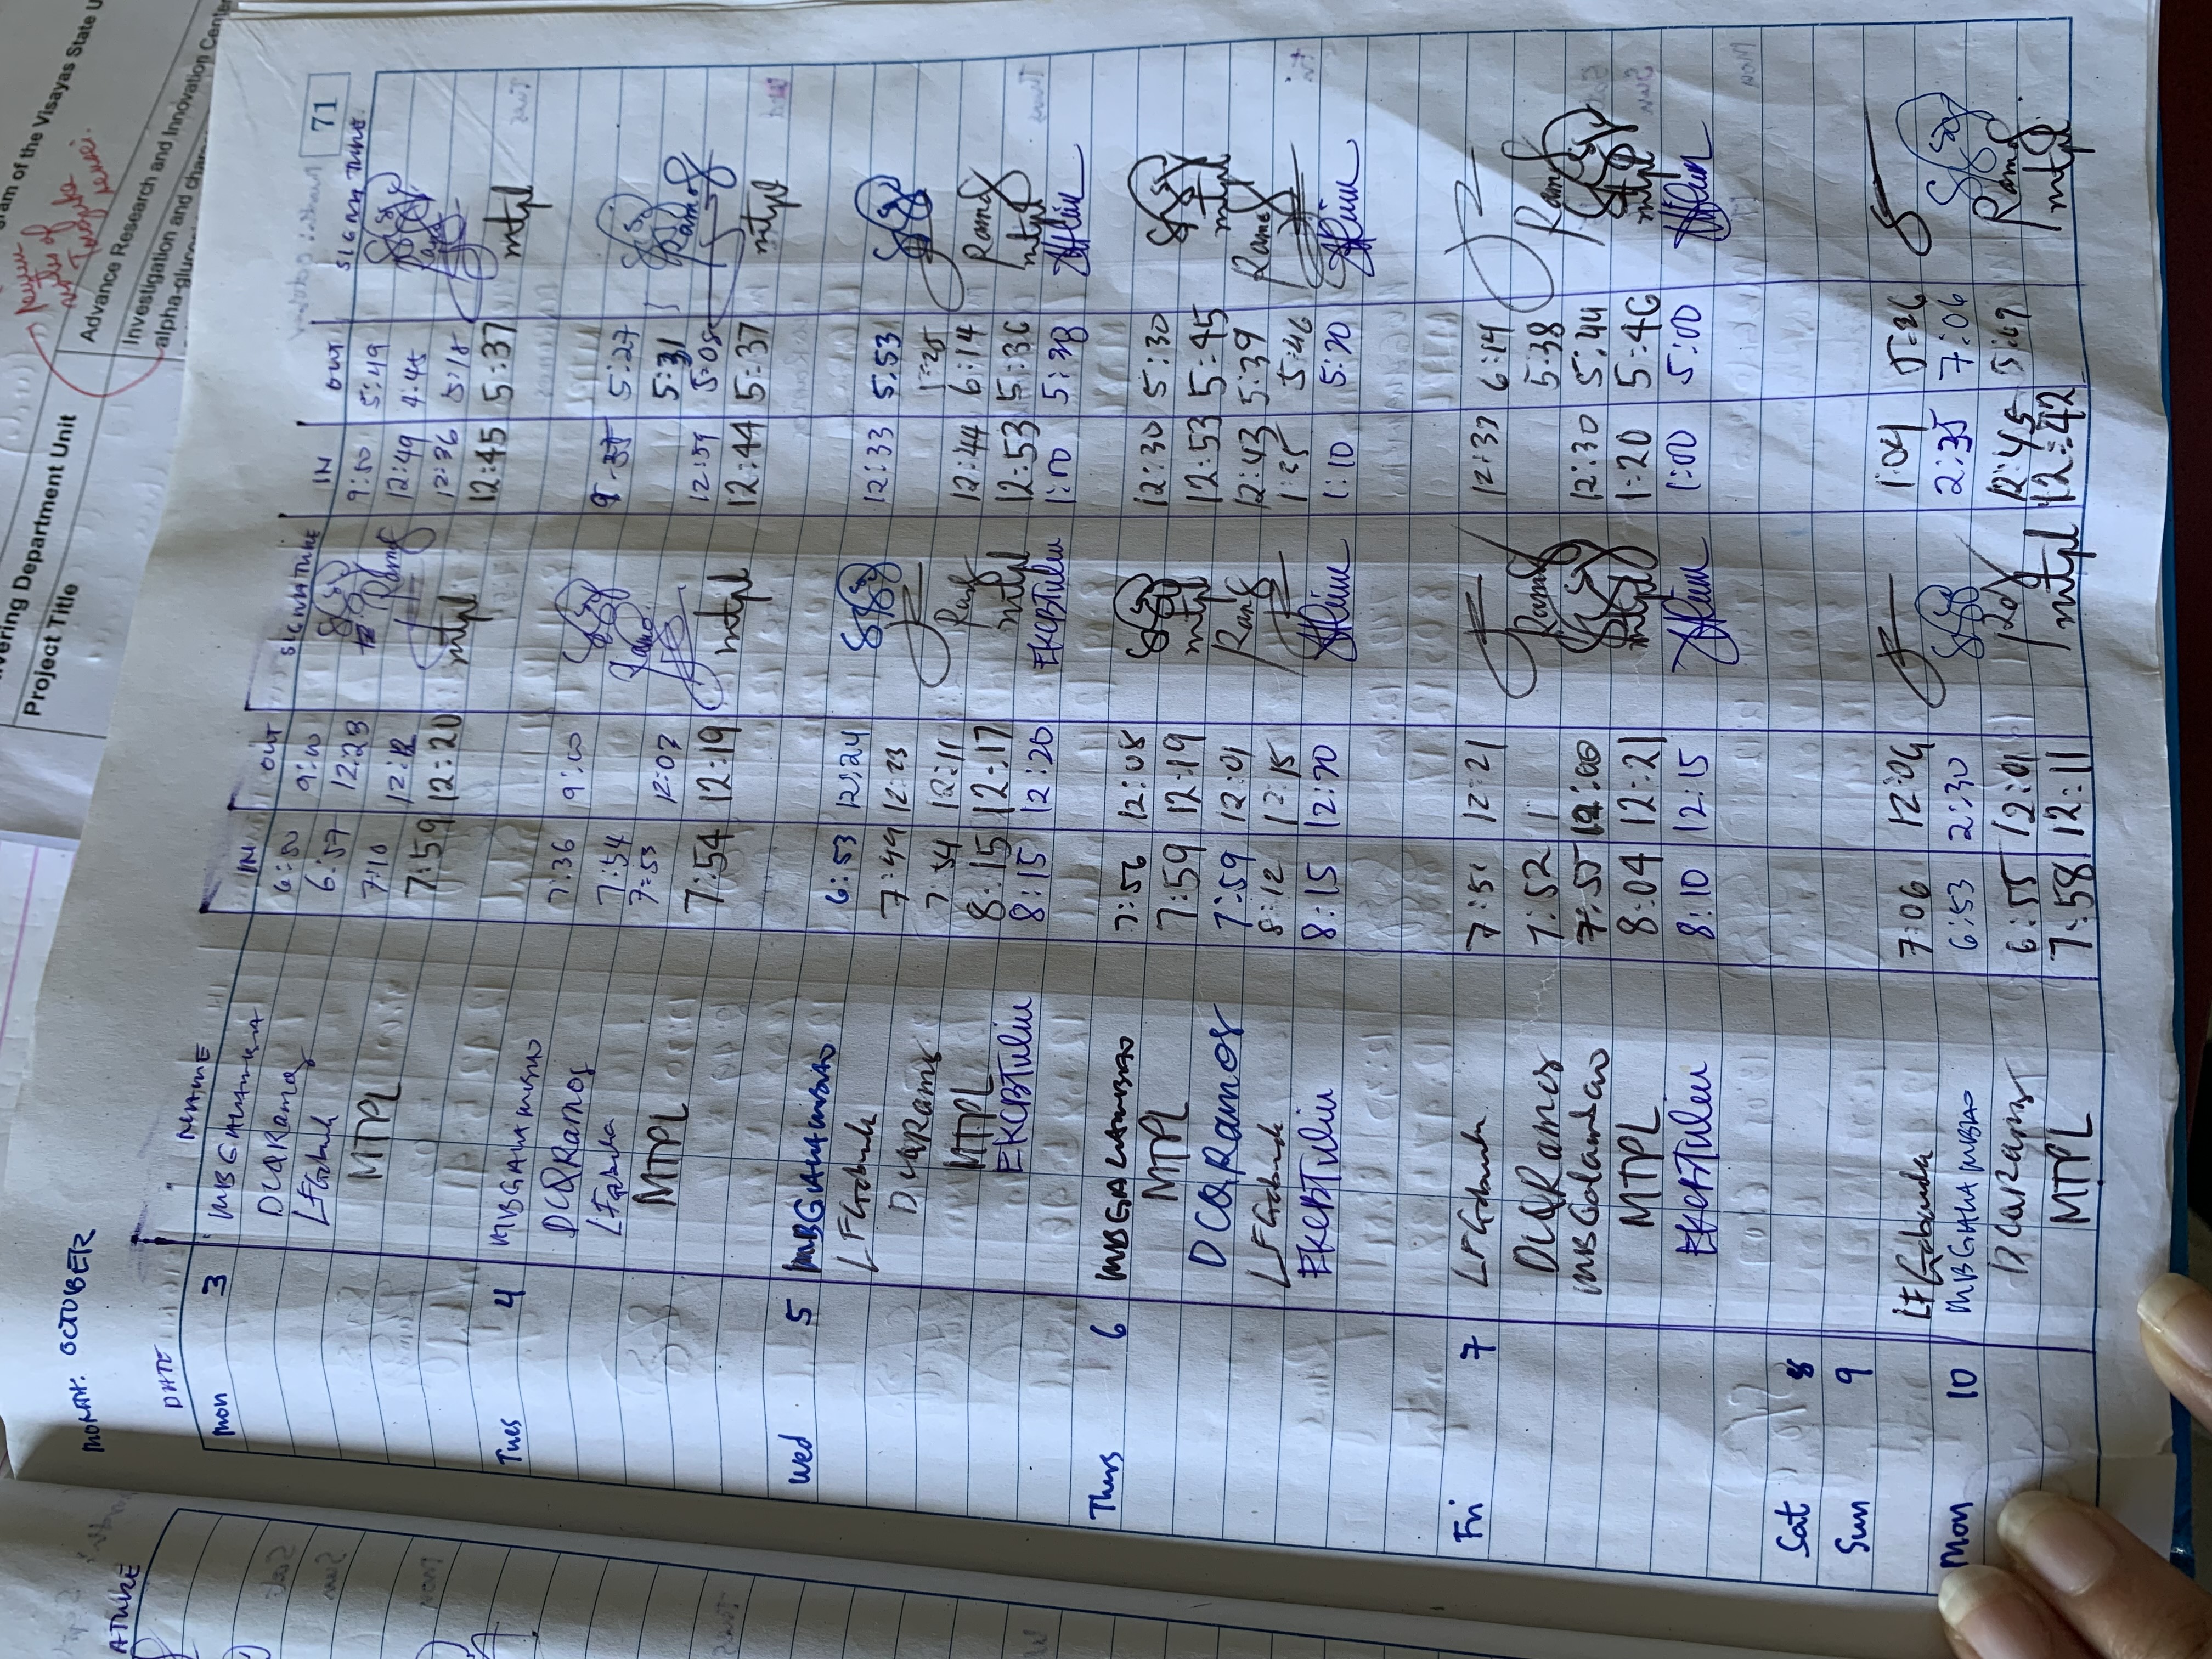 Program of the Visayas State U
Advance Research and Innovation Center
Investigation and
alpha-gluco
Department Unit
Project Title
71
MONTH: OCTOBER
DATE NAME IN OUT SIGNATURE IN OUT SIGNATURE
Mon 3 MBGALAMBAO 6:50 9:00 9:50 5:49
DCQRamos 6:57 12:23 Ramos 12:49 4:45
LFGabunada 7:10 12:12 12:36 5:18
MTPL 7:59 12:20 mtpl 12:45 5:37 mtpl
Tues 4 MBGALAMBAO 7:36 9:00 5:27
DCQRamos 7:54 Ramos 5:31 Ramos
LFGabunada 7:53 12:07 12:59 5:08
MTPL 7:54 12:19 mtpl 12:44 5:37 mtpl
Wed 5 MBGALAMBAO 6:53 12:24 12:33 5:53
LFGabunada 7:49 12:23
DCQRamos 7:54 12:11 Ramos 12:44 6:14 Ramos
MTPL 8:15 12:17 mtpl 12:53 5:36 mtpl
EKCBTulin 8:15 12:20 EKCBTulin 1:00 5:38
Thurs 6 MBGALAMBAO 7:56 12:08 12:30 5:30
MTPL 7:59 12:19 mtpl 12:53 5:45 mtpl
DCQRamos 7:59 12:01 Ramos 12:43 5:39 Ramos
LFGabunada 8:12 12:15 1:25 5:46
EKCBTulin 8:15 12:20 1:10 5:20
Fri 7 LFGabunada 7:51 12:21 12:37 6:14
DCQRamos 7:52 Ramos 5:38 Ramos
MBGalambao 7:55 12:30 5:44
MTPL 8:04 12:21 mtpl 1:20 5:46 mtpl
EKCBTulin 8:10 12:15 1:00 5:00
Sat 8
Sun 9
LFGabunada 7:06 12:04 1:04 5:26
Mon 10 MBGALAMBAO 6:53 2:30 2:35 7:06
DCQRamos 6:55 12:01 12:45 5:49 Ramos
MTPL 7:58 12:11 mtpl 12:42 mtpl